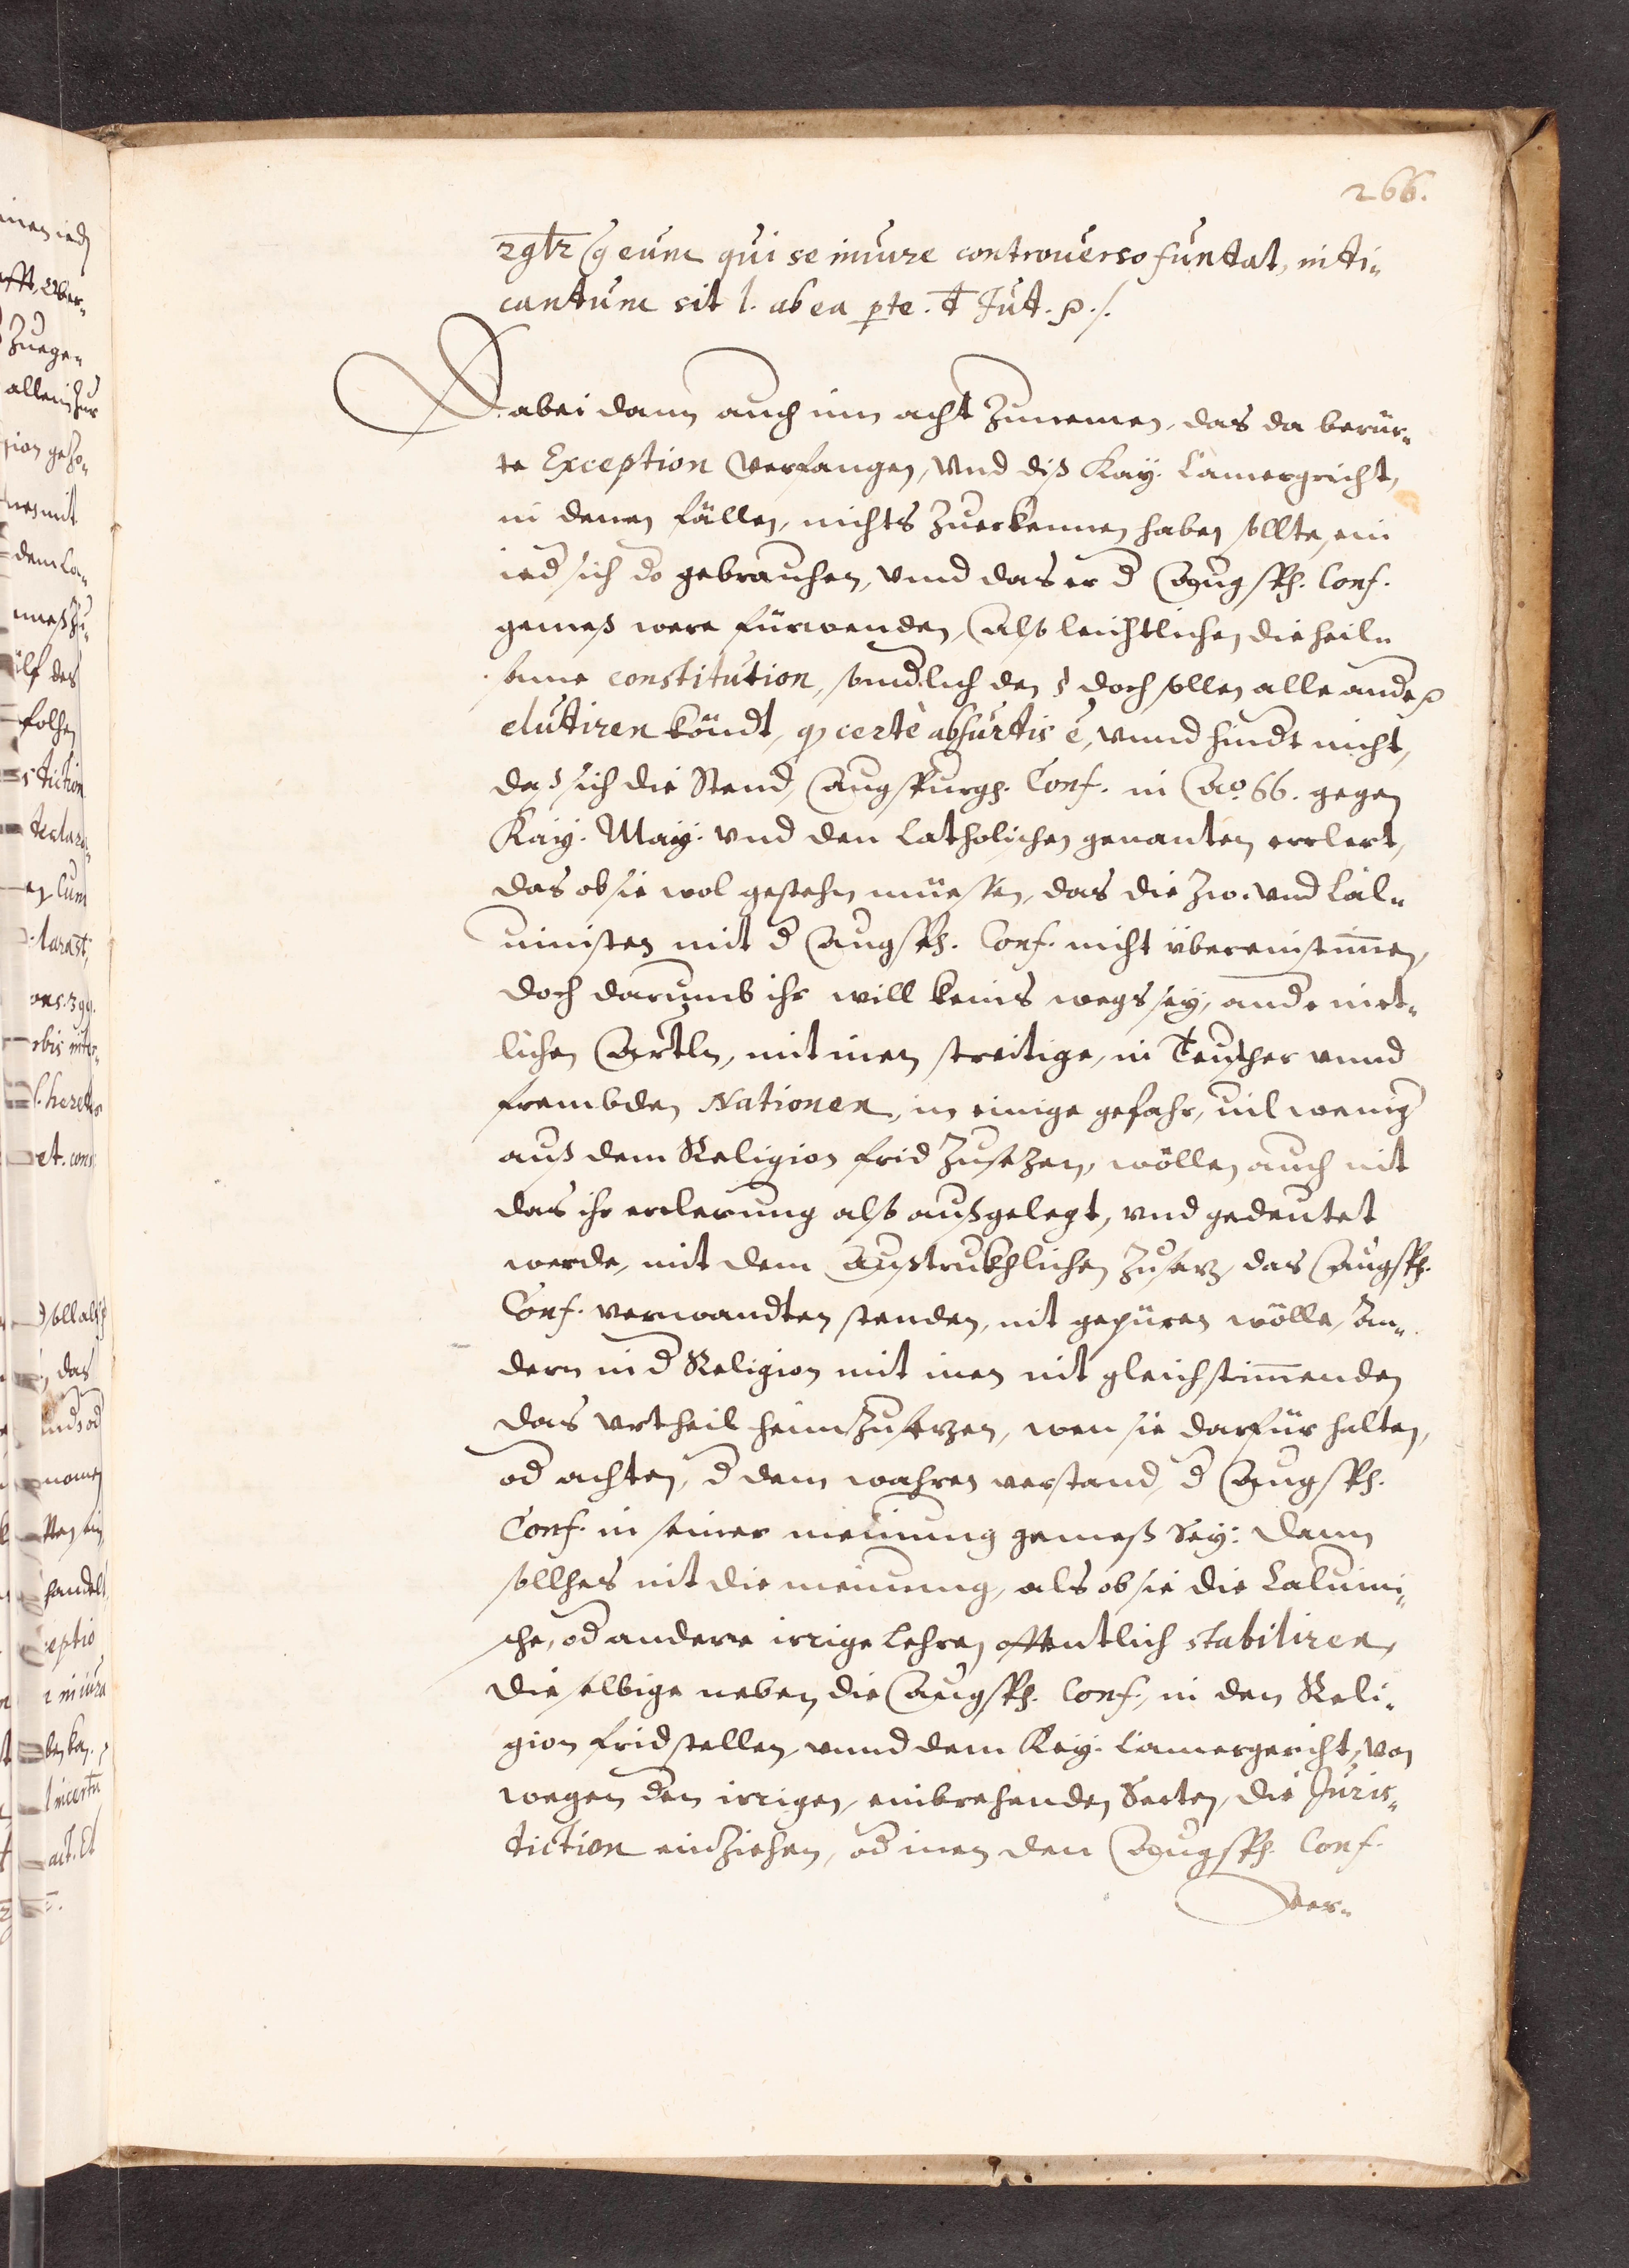 266.
eum qui se in iure controuerso fundat, iudi-
candum sit l. ab ea pte. d Jud.
Dabei dann auch inn acht Zunemen, das da berür-
te Exception verfangen, Vnd diß Kay: Camergricht,
in denen fällen, nichts Zuerkennen haben sollte, ein
ied sich do gebrauchen, vnnd das er d Augsp. Conf.
gemeß were fürwenden, Also leichtlichen die heil-
same constitution, sondlich den § doch sollen alle ande
eludiren köndt, q certè absurdis ē, vnnd hindt nicht,
das sich die Stend, Augspurg. Conf. in Ao. 66. gegen
Kay. May: vnd den Catholichen genanten erclert,
das ob sie wol gestehn müesten, das die Zw. vnd Cal-
uinisten mit d Augsp. Conf. nicht übereinstimmen,
doch darumb ihr will keins wegs sey, ande in et-
lichen Artln, mit inen streitige, in Teutscher vnnd
frembden Nationen, in einige gefahr, vil wenig
auß dem Religion frid Zusezen, wöllen auch nit
das ihr erclerung also außgelegt, vnd gedeutet
werde, mit dem Außtrukhlichen Zusaz, das Augsp.
Conf. verwandten stenden, nit gepüren wölle, An-
dern in d Religion mit inen nit gleichstimmenden
das vrtheil heimZusezen, wen sie darfür halten,
od achten, d dem wahren verstand, d Augsp.
Conf. in seiner meinung gemeß Sey: dann
sollhes nit die meinung, als ob sie die Caluini-
sche, od andere irrige Lehren offentlich stabiliren,
die selbige neben die Augsp. Conf. in den Reli-
gion frid stellen, vnnd dem Kay: Camergericht, von
wegen den irrigen, einbrehenden Secten, die Juris-
diction einZiehen, od inen den Augsp. Conf.
ver-